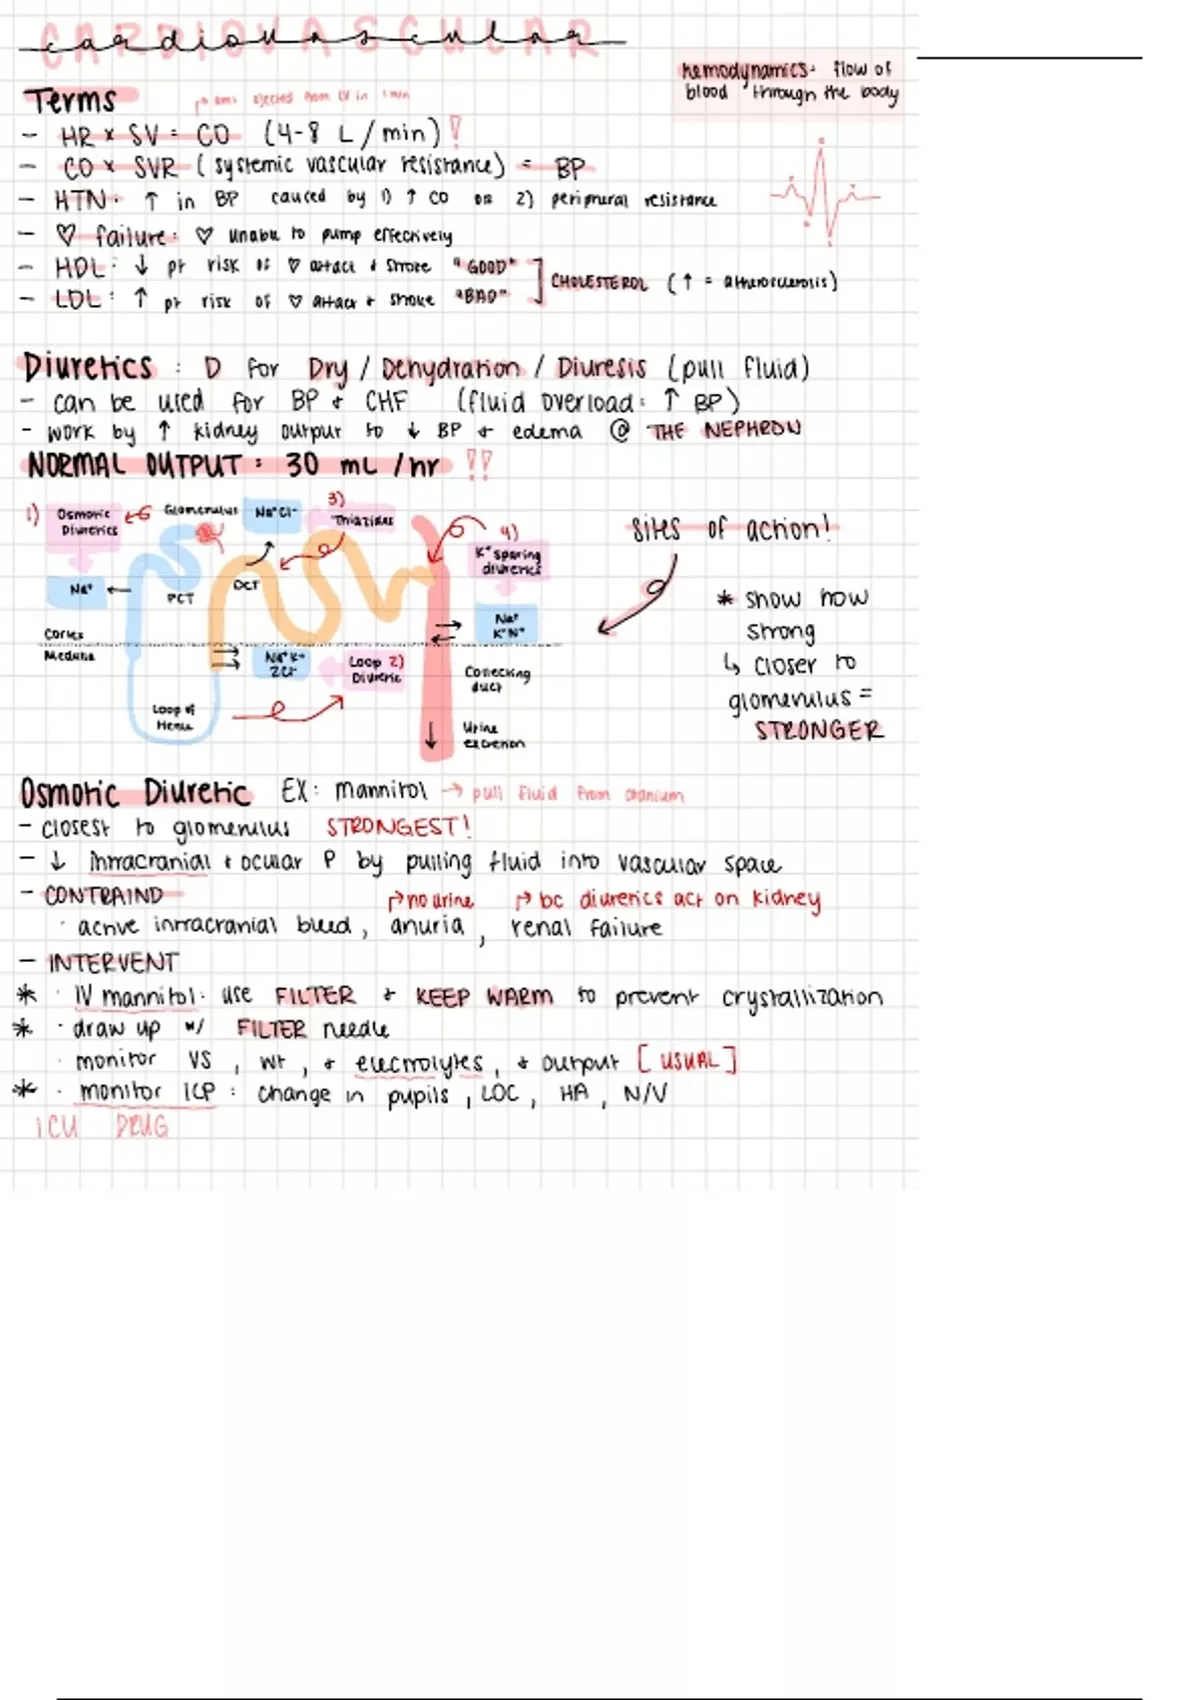 CARDIOVASCULAR
cardiovascular
hemodynamics: flow of
blood through the body
Terms
↱ amt ejected from LV in 1 min
- HR x SV = CO (4-8 L/min)!
- CO x SVR (systemic vascular resistance) = BP
- HTN: ↑ in BP caused by 1) ↑ CO or 2) peripheral resistance
- ♡ failure: ♡ unable to pump effectively
- HDL: ↓ pt risk of ♡ attack + stroke "GOOD"
- LDL: ↑ pt risk of ♡ attack + stroke "BAD"
CHOLESTEROL (↑ = atherosclerosis)
Diuretics : D for Dry / Dehydration / Diuresis (pull fluid)
- can be used for BP + CHF (fluid overload: ↑ BP)
- work by ↑ kidney output to ↓ BP + edema @ THE NEPHRON
NORMAL OUTPUT: 30 mL/hr !!
1) Osmotic
Diuretics
Glomerulus
Na⁺Cl⁻
3)
Thiazides
4)
K⁺ sparing
diuretics
Na⁺
PCT
DCT
Na⁺
K⁺H⁺
Cortex
Medulla
Na⁺K⁺
2Cl⁻
Loop 2)
Diuretic
Collecting
duct
Loop of
Henle
Urine
excretion
sites of action!
* show how
strong
↳ closer to
glomerulus =
STRONGER
Osmotic Diuretic EX: mannitol → pull fluid from cranium
- closest to glomerulus STRONGEST!
- ↓ intracranial + ocular P by pulling fluid into vascular space
- CONTRAIND
↱ no urine ↱ bc diuretics act on kidney
· active intracranial bleed, anuria, renal failure
- INTERVENT
* · IV mannitol: use FILTER + KEEP WARM to prevent crystallization
* · draw up w/ FILTER needle
· monitor VS, wt, + electrolytes, + output [USUAL]
* · monitor ICP: change in pupils, LOC, HA, N/V
ICU DRUG